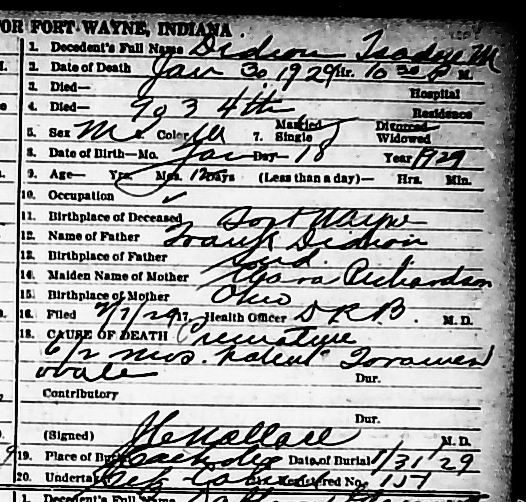 FOR FORT WAYNE, INDIANA
1. Decedent's Full Name Didion Isadore M
2. Date of Death Jan 30 1929 Hr. 10 30 P M.
3. Died— Hospital
4. Died— 903 4th Residence
5. Sex M Color W 7. Married Single Divorced Widowed
8. Date of Birth—Mo. Jan Day 18 Year 1929
9. Age— Yrs. Mos. 12 Days (Less than a day)— Hrs. Min.
10. Occupation ✓
11. Birthplace of Deceased Fort Wayne
12. Name of Father Frank Didion
13. Birthplace of Father Ind.
14. Maiden Name of Mother Clara Richardson
15. Birthplace of Mother Ohio
16. Filed 2/1/29 17. Health Officer D R B. M. D.
18. CAUSE OF DEATH Premature
6 1/2 mos. Patent Foramen
ovale Dur.
Contributory
Dur.
(Signed) Wallace M. D.
19. Place of Burial Catholic Date of Burial 1/31 29
20. Undertaker Registered No. 157
1. Decedent's Full Name